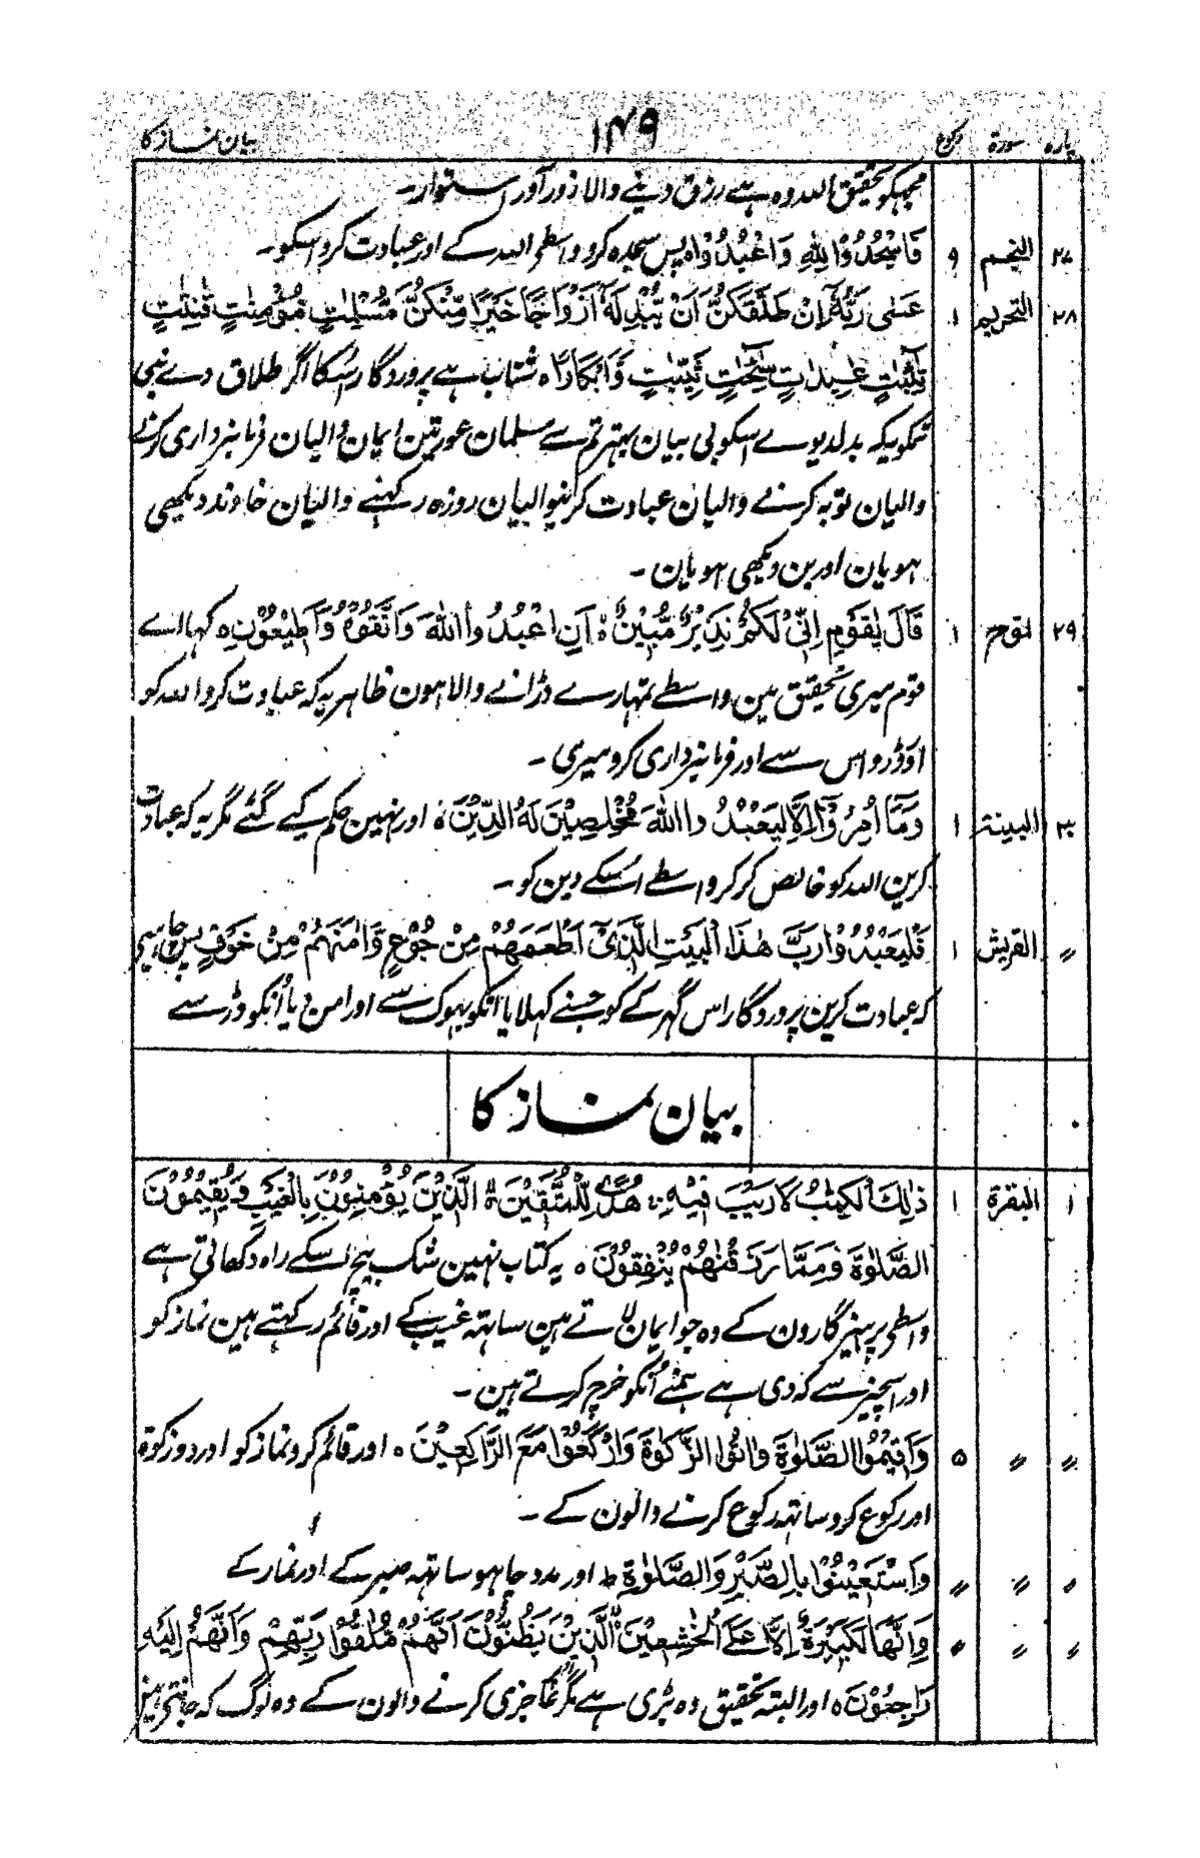 پارہ سورة رکوع ۱۴۹ بیان نماز کا
مجہکو تحقیق اللہ وہ ہے رزق دینے والا زور آور استوار۔
۲۷ النجم ۹ فَاسْجُدُوْا لِلّٰهِ وَاعْبُدُوْا ہ پس سجدہ کرو واسطے اللہ کے اور عبادت کرو اسکو۔
۲۸ التحریم ۱ عَسٰى رَبُّهٗٓ اِنْ طَلَّقَكُنَّ اَنْ يُّبْدِلَهٗٓ اَزْوَاجًا خَيْرًا مِّنْكُنَّ مُسْلِمٰتٍ مُّؤْمِنٰتٍ قٰنِتٰتٍ
تٰٓئِبٰتٍ عٰبِدٰتٍ سٰٓئِحٰتٍ ثَيِّبٰتٍ وَّاَبْكَارًا ہ شتاب ہے پروردگار اُسکا اگر طلاق دے نبی
تمکو یکہ بدلدیوے اسکو بی بیان بہتر تم سے مسلمان عورتین ایمان والیان فرمانبرداری کرنے
والیان توبہ کرنے والیان عبادت کرنیوالیان روزہ رکہنے والیان خاوند دیکھی
ہویان اور بن دیکھی ہویان۔
۲۹ نوح ۱ قَالَ يٰقَوْمِ اِنِّىْ لَكُمْ نَذِيْرٌ مُّبِيْنٌ ہ اَنِ اعْبُدُوا اللّٰهَ وَاتَّقُوْهُ وَاَطِيْعُوْنِ ہ کہا اے
قوم میری تحقیق مین واسطے تمہارے ڈرانے والا ہون ظاہر یہ کہ عبادت کرو اللہ کو
اور ڈرو اس سے اور فرمانبرداری کرو میری۔
۳۰ البینتہ ۱ وَمَآ اُمِرُوْٓا اِلَّا لِيَعْبُدُوا اللّٰهَ مُخْلِصِيْنَ لَهُ الدِّيْنَ ہ اور نہین حکم کیے گئے مگر یہ کہ عبادت
کرین اللہ کو خالص کر کر واسطے اُسکے دین کو۔
〃 القریش ۱ فَلْيَعْبُدُوْا رَبَّ هٰذَا الْبَيْتِ الَّذِىْٓ اَطْعَمَهُمْ مِنْ جُوْعٍ وَّاٰمَنَهُمْ مِنْ خَوْفٍ پس چاہیے
کہ عبادت کرین پروردگار اس گہر کے کو جسنے کہلایا اُنکو بہوک سے اور امن دیا اُنکو ڈر سے
بیان نماز کا
۱ البقرة ۱ ذٰلِكَ الْكِتٰبُ لَا رَيْبَ فِيْهِ هُدًى لِّلْمُتَّقِيْنَ الَّذِيْنَ يُؤْمِنُوْنَ بِالْغَيْبِ وَيُقِيْمُوْنَ
الصَّلٰوةَ وَمِمَّا رَزَقْنٰهُمْ يُنْفِقُوْنَ ہ یہ کتاب نہین شک بیچ اسکے راہ دکھاتی ہے
واسطے پرہیزگارون کے وہ جو ایمان لاتے ہین ساتہہ غیب کے اور قائم رکہتے ہین نماز کو
اور اُسچیز سے کہ دی ہے ہمنے اُنکو خرچ کرتے ہین۔
〃 〃 ۵ وَاَقِيْمُوا الصَّلٰوةَ وَاٰتُوا الزَّكٰوةَ وَارْكَعُوْا مَعَ الرَّاكِعِيْنَ ہ اور قائم کرو نماز کو اور دو زکوة
اور رکوع کرو ساتہہ رکوع کرنے والون کے۔
〃 〃 〃 وَاسْتَعِيْنُوْا بِالصَّبْرِ وَالصَّلٰوةِ ط اور مدد چاہو ساتہہ صبر کے اور نماز کے
〃 〃 〃 وَاِنَّهَا لَكَبِيْرَةٌ اِلَّا عَلَى الْخٰشِعِيْنَ الَّذِيْنَ يَظُنُّوْنَ اَنَّهُمْ مُلٰقُوْا رَبِّهِمْ وَاَنَّهُمْ اِلَيْهِ
رَاجِعُوْنَ ہ اور البتہ تحقیق وہ بڑی ہے مگر عاجزی کرنے والون کے وہ لوگ کہ جانتے ہین